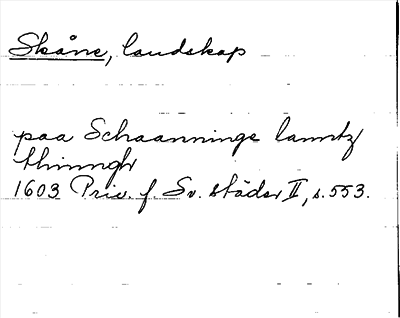 Skåne, landskap
paa Schaanninge lanndtz
thinngh
1603 Priv. f. Sv. städer II, s. 553.